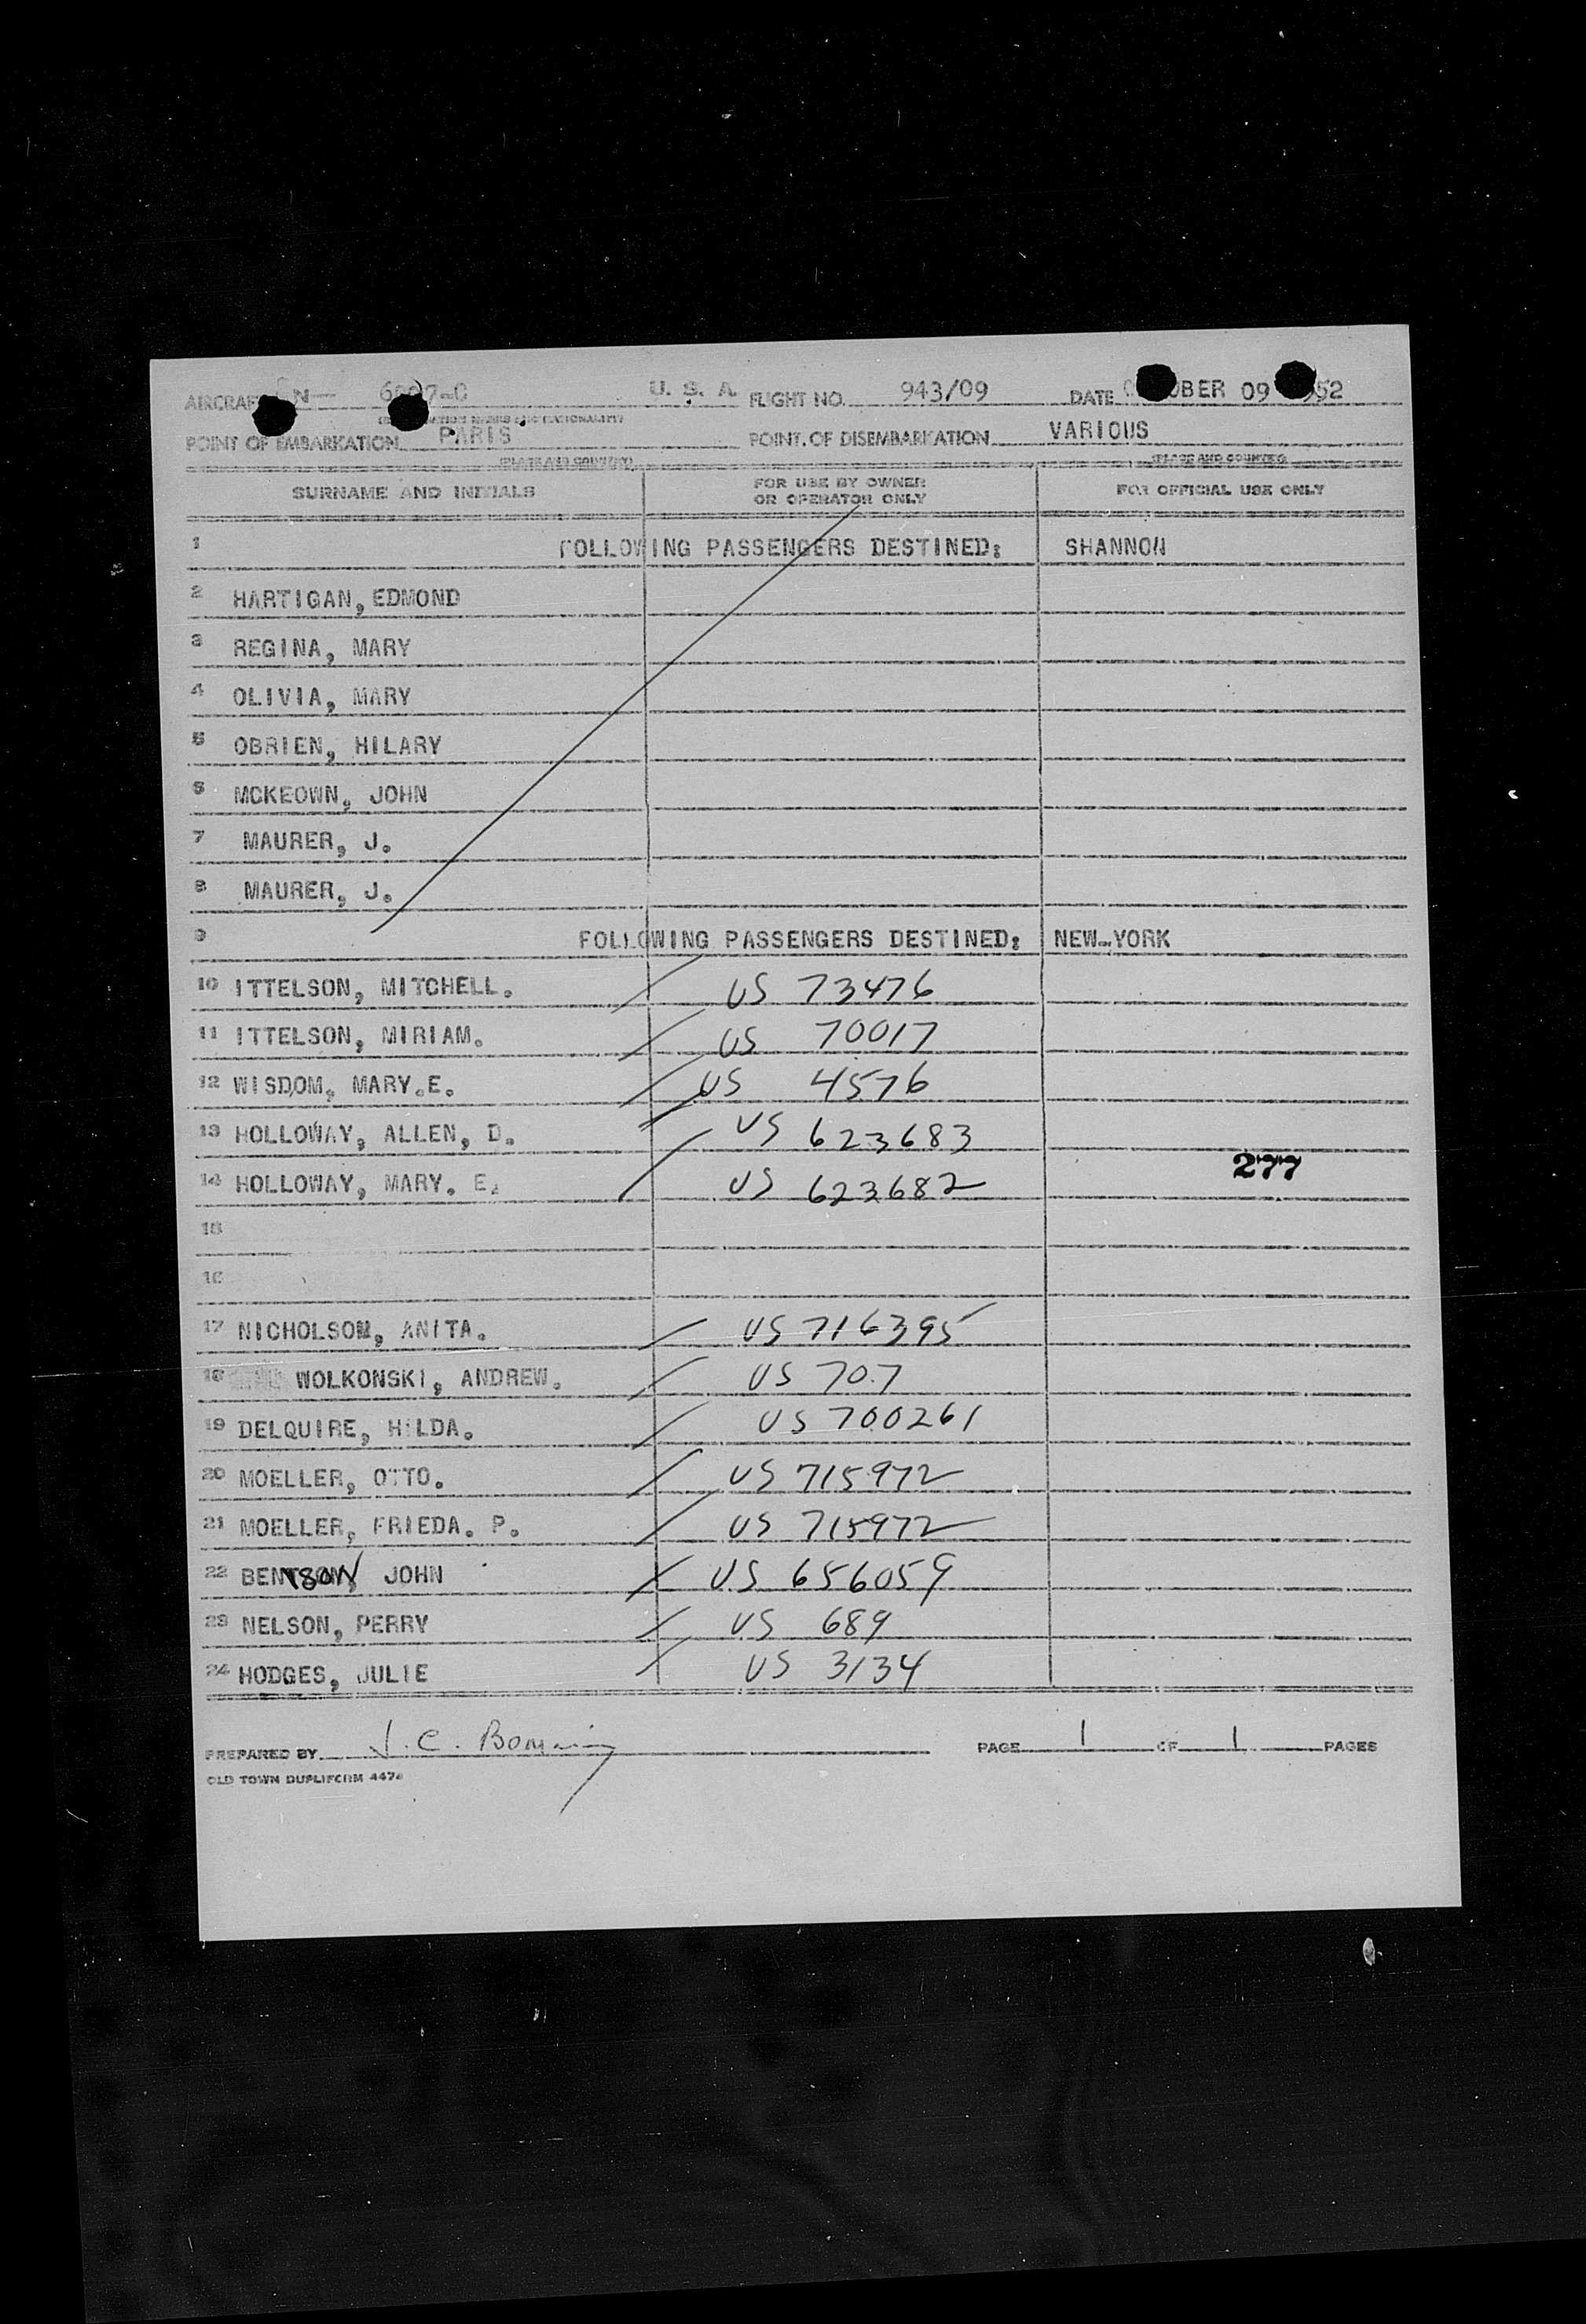 AIRCRAFT N— U. S. A. FLIGHT NO. 943/09 DATE OBER 09 52
POINT OF EMBARKATION PARIS. POINT OF DISEMBARKATION VARIOUS
(PLACE AND COUNTRY) (PLACE AND COUNTRY)
SURNAME AND INITIALS FOR USE BY OWNER OR OPERATOR ONLY FOR OFFICIAL USE ONLY
1 FOLLOWING PASSENGERS DESTINED: SHANNON
2 HARTIGAN, EDMOND
3 REGINA, MARY
4 OLIVIA, MARY
5 OBRIEN, HILARY
6 MCKEOWN, JOHN
7 MAURER, J.
8 MAURER, J.
9 FOLLOWING PASSENGERS DESTINED: NEW-YORK
10 ITTELSON, MITCHELL. US 73476
11 ITTELSON, MIRIAM. US 70017
12 WISDOM, MARY.E. US 4576
13 HOLLOWAY, ALLEN, D. US 623683
14 HOLLOWAY, MARY. E. US 623682 277
15
16
17 NICHOLSON, ANITA. US 716395
18 WOLKONSKI, ANDREW. US 707
19 DELQUIRE, HILDA. US 700261
20 MOELLER, OTTO. US 715972
21 MOELLER, FRIEDA. P. US 715972
22 BENTSON, JOHN US 656059
23 NELSON, PERRY US 689
24 HODGES, JULIE US 3134
PREPARED BY J. C. PAGE 1 OF 1 PAGES
OLD TOWN DUPLIFORM 4474